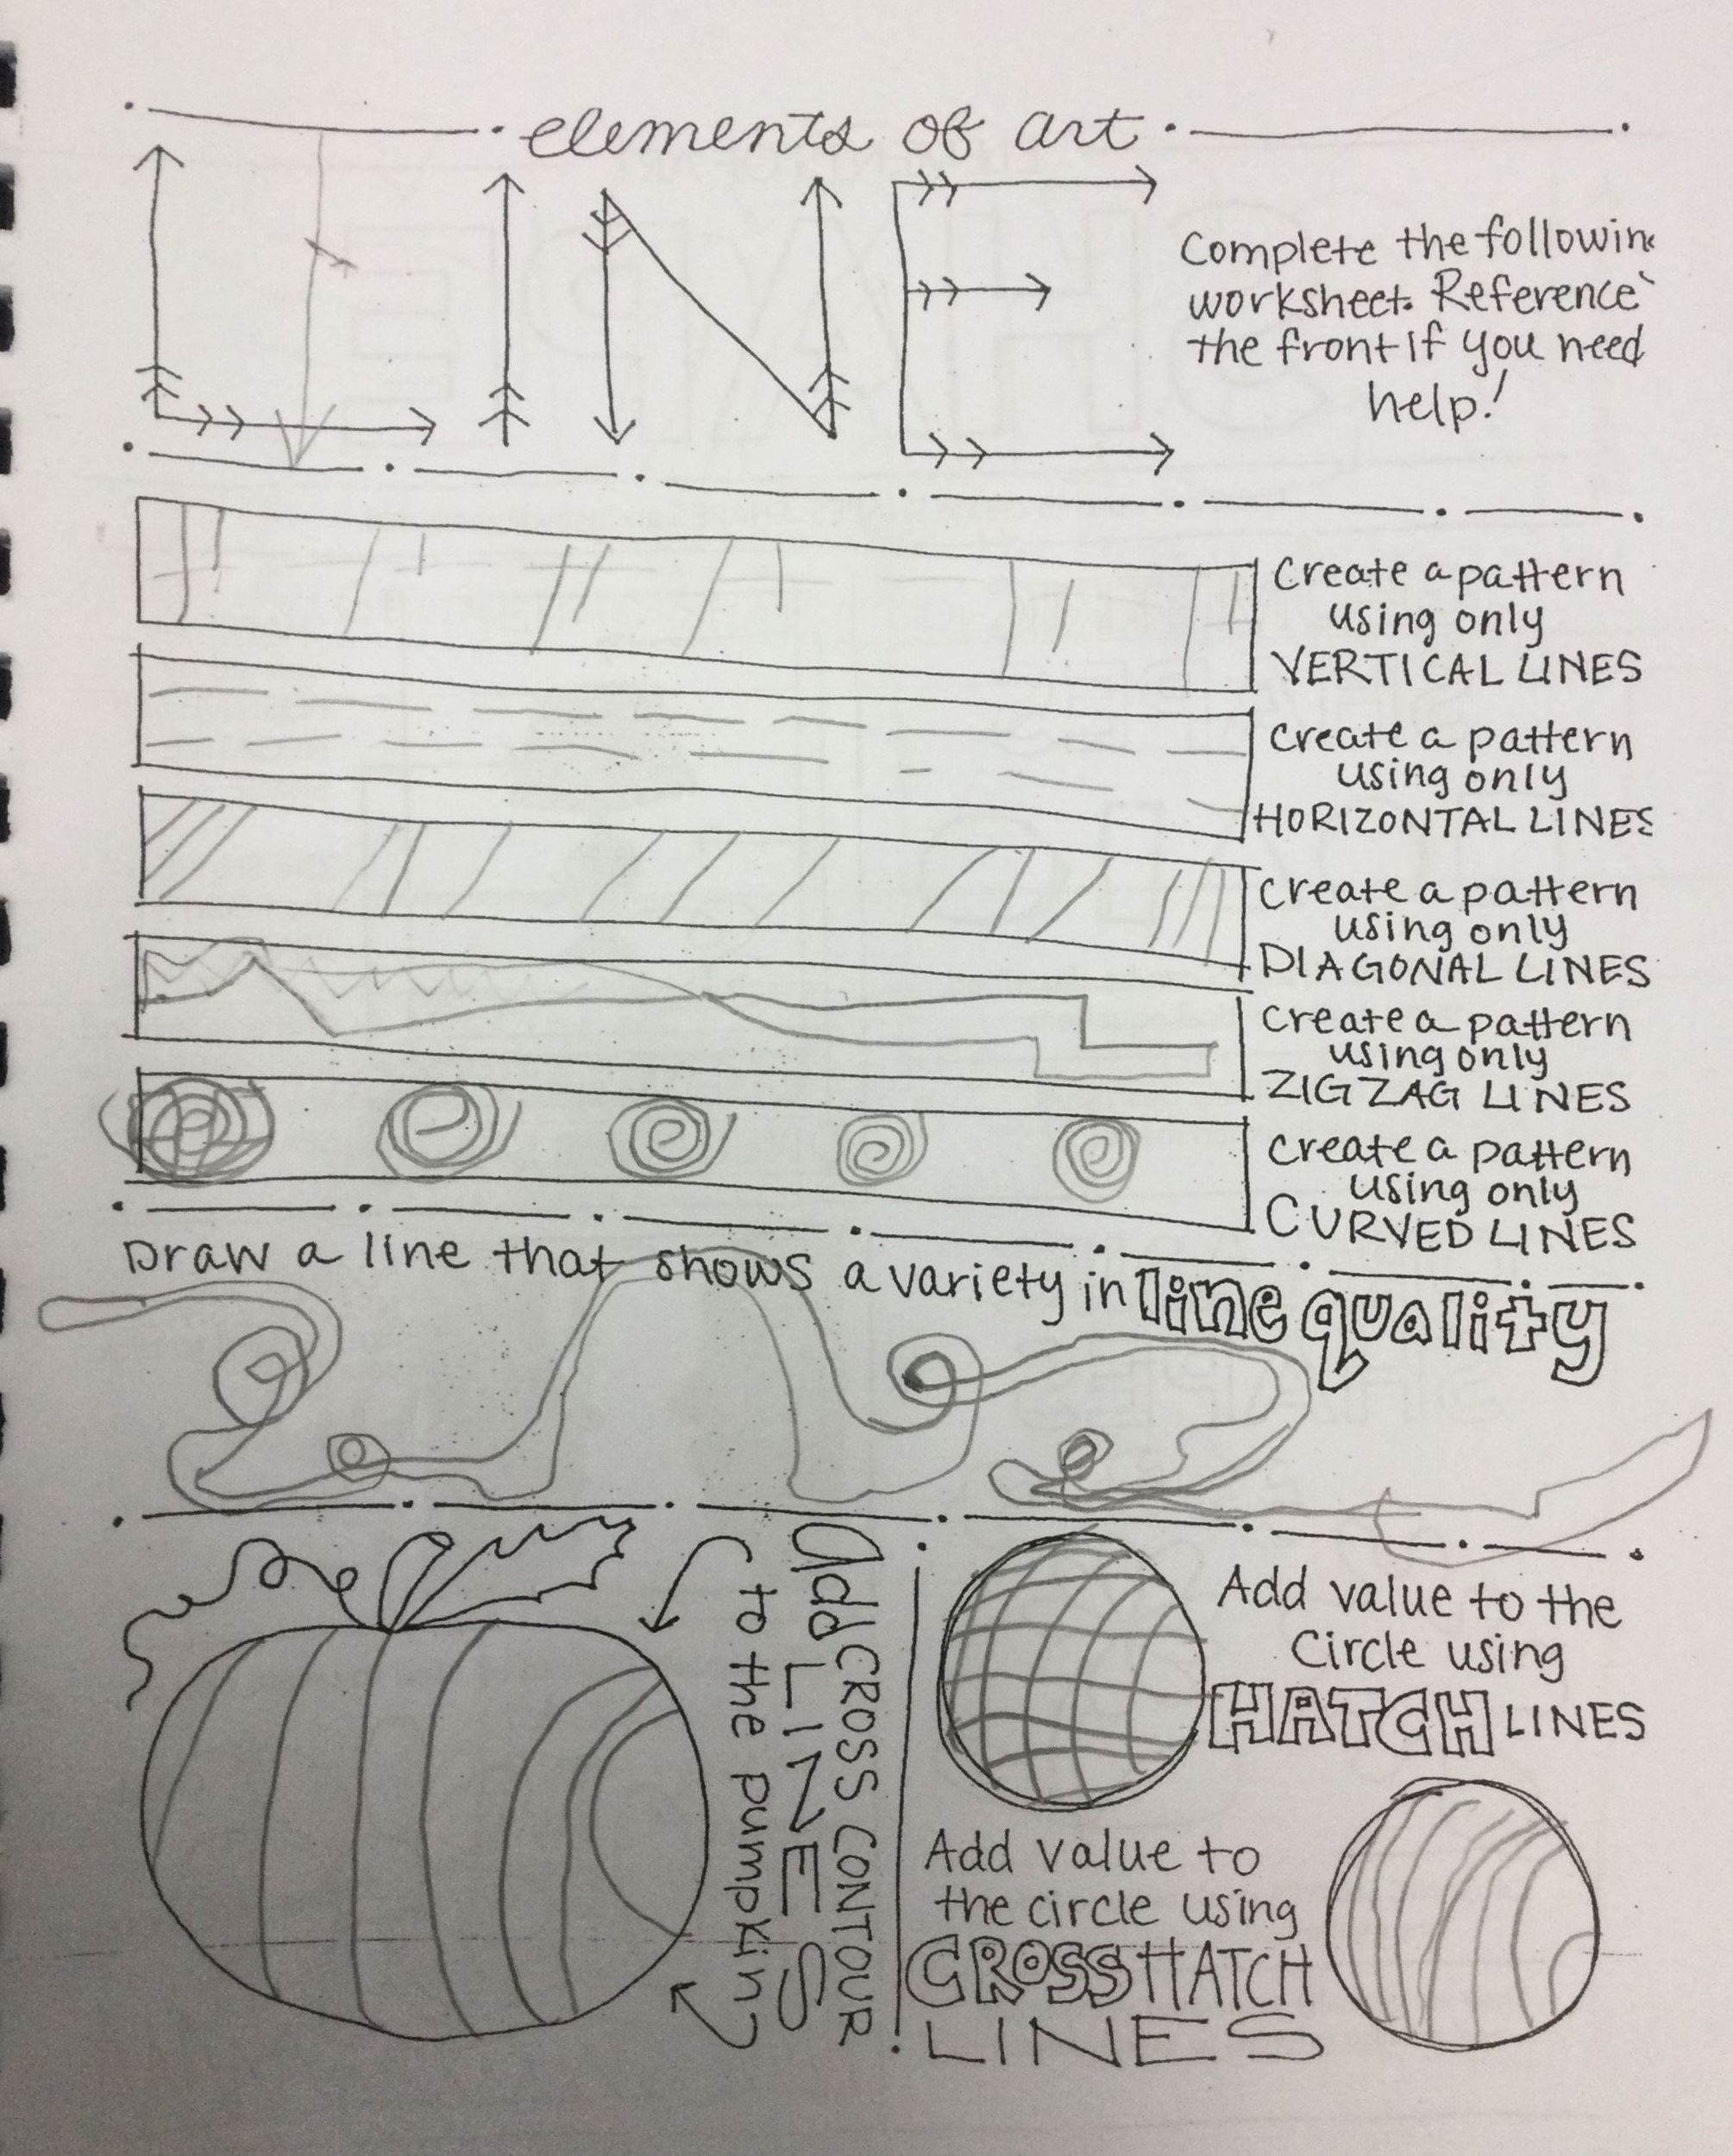 elements of art
LINE
Complete the followin
worksheet. Reference
the front if you need
help!
Create a pattern
using only
VERTICAL LINES
Create a pattern
using only
HORIZONTAL LINES
Create a pattern
using only
DIAGONAL LINES
Create a pattern
using only
ZIGZAG LINES
Create a pattern
using only
CURVED LINES
Draw a line that shows a variety in line quality
Add CROSS CONTOUR
LINES
to the pumpkin
Add value to the
Circle using
HATCH LINES
Add value to
the circle using
CROSSHATCH
LINES